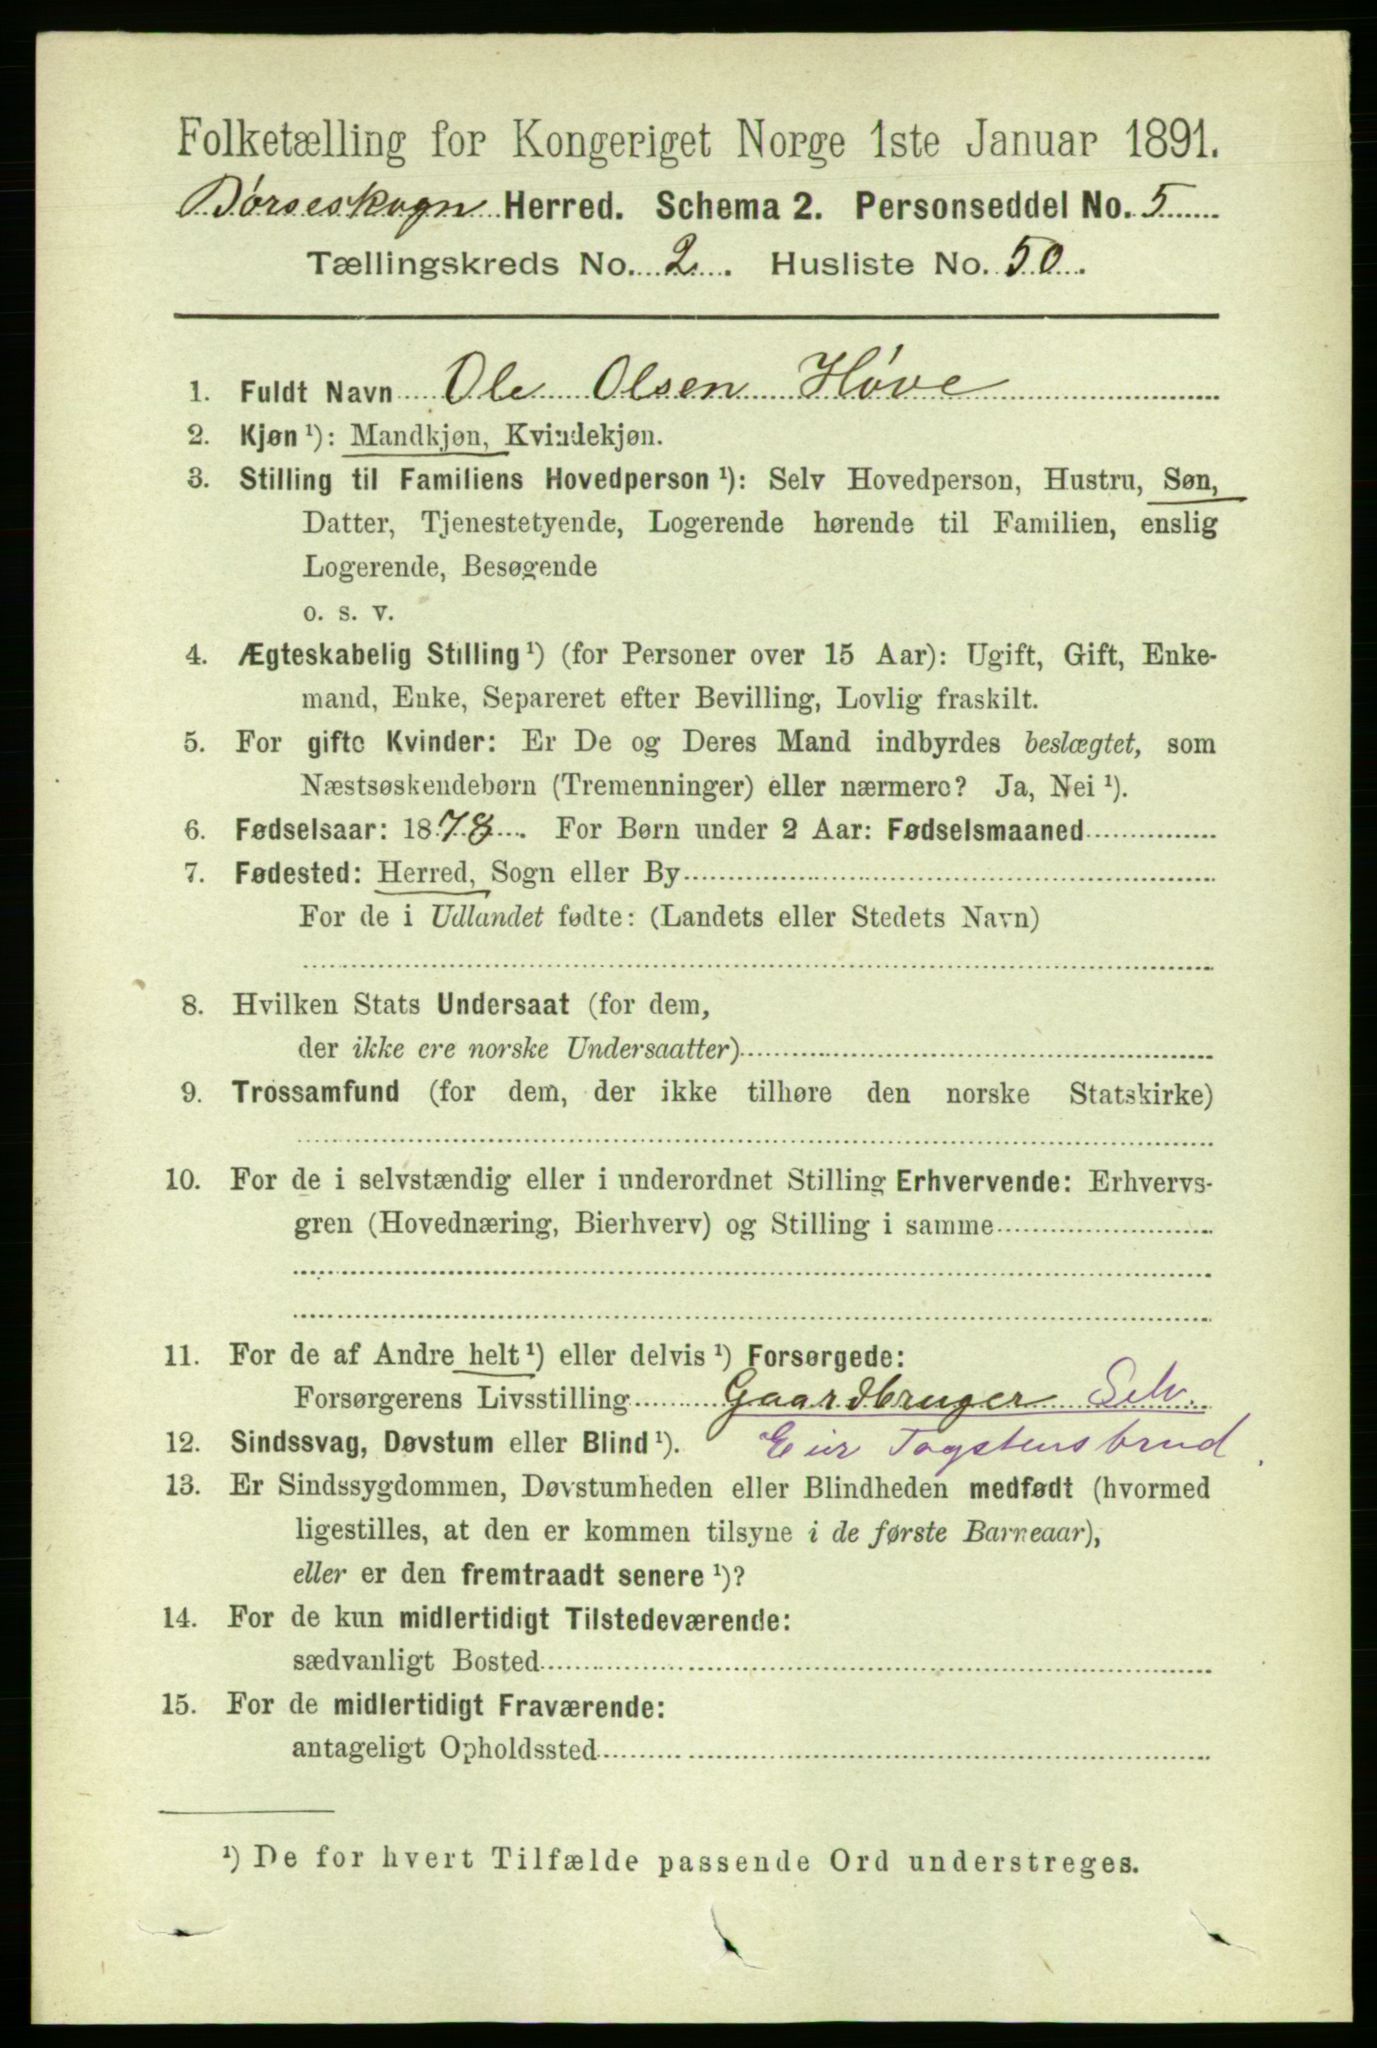 Folketælling for Kongeriget Norge 1ste Januar 1891.
Børseskogn Herred. Schema 2. Personseddel No. 5
Tællingskreds No. 2. Husliste No. 50.
1. Fuldt Navn Ole Olsen Høve
2. Kjøn ¹): Mandkjøn, Kvindekjøn.
3. Stilling til Familiens Hovedperson ¹): Selv Hovedperson, Hustru, Søn,
Datter, Tjenestetyende, Logerende hørende til Familien, enslig
Logerende, Besøgende
o. s. v.
4. Ægteskabelig Stilling ¹) (for Personer over 15 Aar): Ugift, Gift, Enke-
mand, Enke, Separeret efter Bevilling, Lovlig fraskilt.
5. For gifte Kvinder: Er De og Deres Mand indbyrdes beslægtet, som
Næstsøskendebørn (Tremenninger) eller nærmere? Ja, Nei ¹).
6. Fødselsaar: 1878. For Børn under 2 Aar: Fødselsmaaned
7. Fødested: Herred, Sogn eller By
For de i Udlandet fødte: (Landets eller Stedets Navn)
8. Hvilken Stats Undersaat (for dem,
der ikke ere norske Undersaatter)
9. Trossamfund (for dem, der ikke tilhøre den norske Statskirke)
10. For de i selvstændig eller i underordnet Stilling Erhvervende: Erhvervs-
gren (Hovednæring, Bierhverv) og Stilling i samme
11. For de af Andre helt ¹) eller delvis ¹) Forsørgede:
Forsørgerens Livsstilling Gaardbruger Selv.
12. Sindssvag, Døvstum eller Blind ¹). Eier Tagstensbrud
13. Er Sindssygdommen, Døvstumheden eller Blindheden medfødt (hvormed
ligestilles, at den er kommen tilsyne i de første Barneaar),
eller er den fremtraadt senere ¹)?
14. For de kun midlertidigt Tilstedeværende:
sædvanligt Bosted
15. For de midlertidigt Fraværende:
antageligt Opholdssted
¹) De for hvert Tilfælde passende Ord understreges.